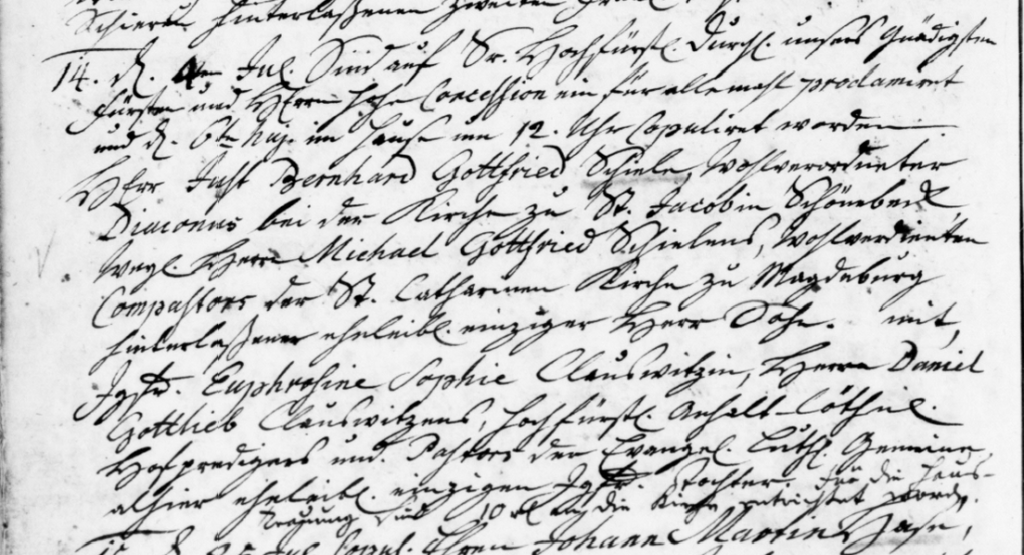 hinterlaßenen zweiten
14. d. 4ten Jul. Sind auf Sr. Hochfürstl. Durchl. unsers Gnädigsten
Fürsten und HErrn hohe Concession ein für allemahl proclamiret
und d. 6ten huj. im Hause um 12. Uhr Copuliret worden
HErr Just Bernhard Gottfried Schiele, Wohlverordneter
Diaconus bei der Kirche zu St. Jacob in Schönebeck,
Weyl. Herrn Michael Gottfried Schielens, Wohlverdienten
Compastors der St. Catharinen Kirche zu Magdeburg
hinterlaßener eheleibl. einziger Herr Sohn. mit
Jgfr. Euphrosine Sophie Clauswitzin, Herrn Daniel
Gottlieb Clauswitzens, Hochfürstl. Anhalt-Cöthnl.
Hofpredigers und Pastors der Evangel. Luth. Gemeine
alhier eheleibl. einzigen Jgfr. Tochter. Für die Haus-
Trauung sind 10 rl an die Kirche entrichtet word.
Jul. Copul. Johann Martin